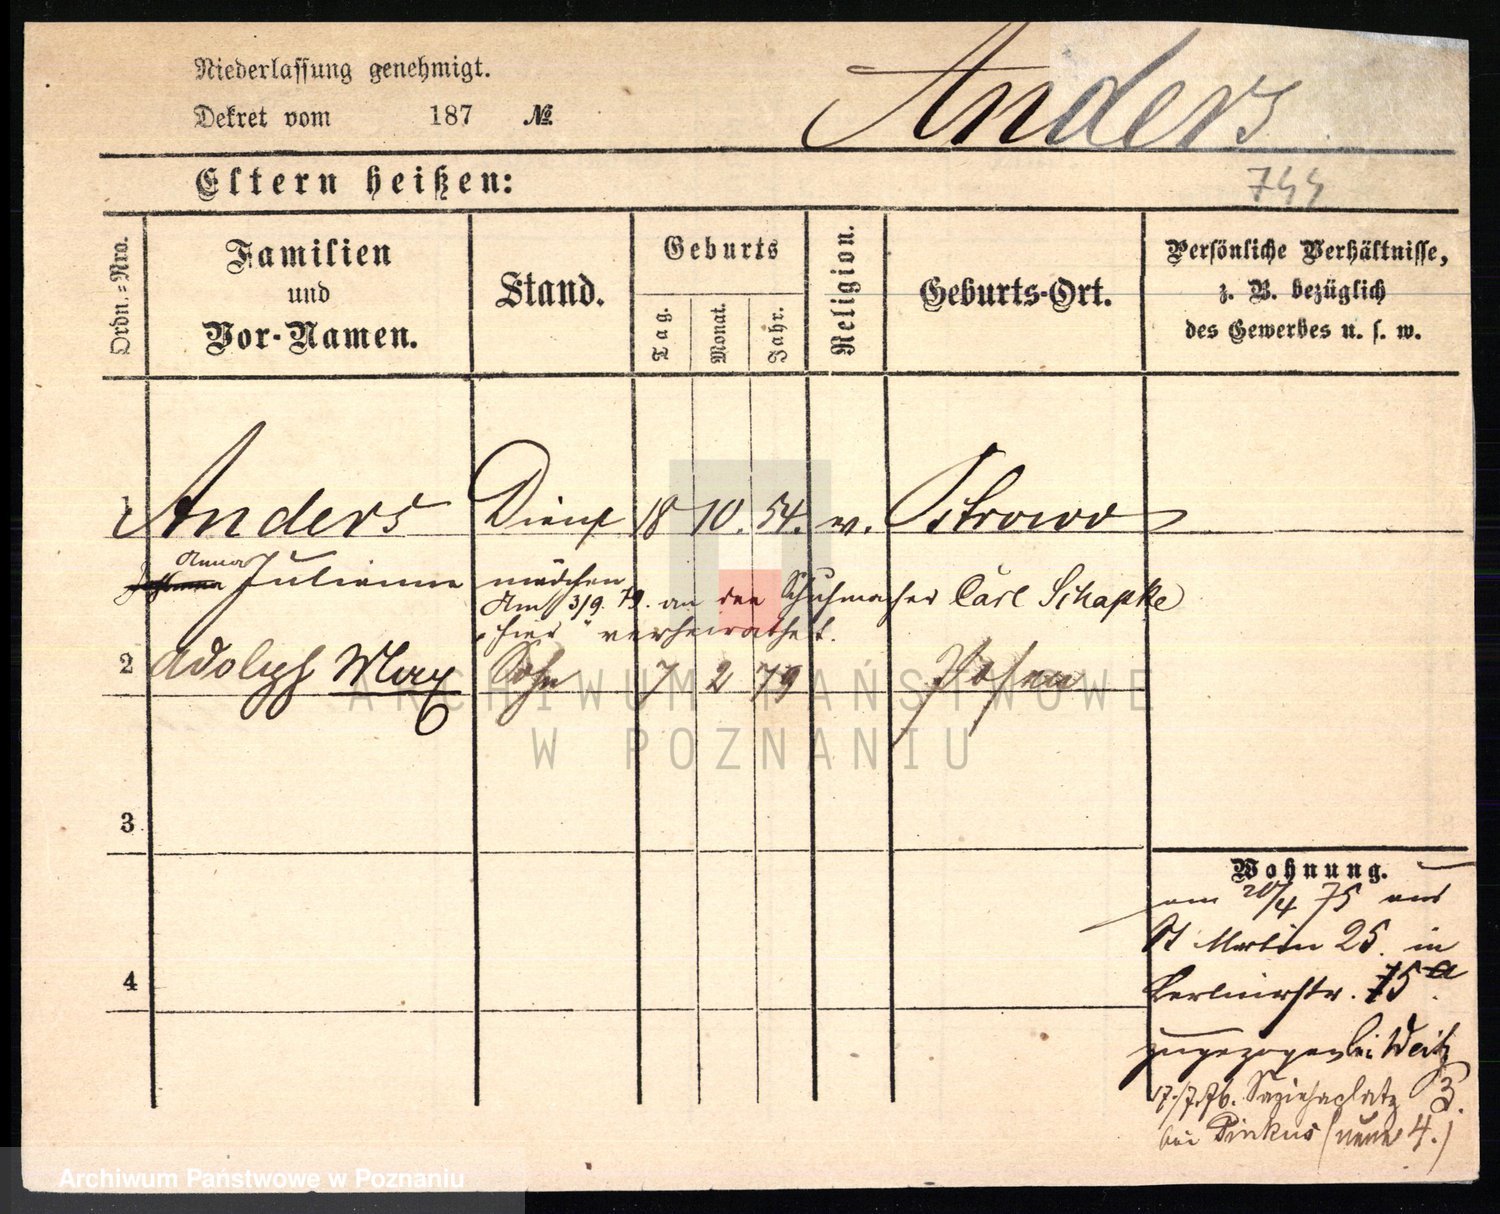 Niederlassung genehmigt.
Dekret vom 187 №
Anders
Eltern heißen:
744
Ordn.=Nro.
Familien
und
Vor-Namen.
Stand.
Geburts
Tag.
Monat.
Jahr.
Religion.
Geburts-Ort.
Persönliche Verhältnisse,
z. B. bezüglich
des Gewerbes u. s. w.
1 Anders Dienst 18 10. 54. Ostrowo
Anna
Julianna mädchen
Am 3/9. 79. an den Schuhmacher Carl Schapke
hier verheirathet.
2 Adolph Max Sohn 7 2 79 Posen
3
4
Wohnung.
am 20/4 75 aus
St Martin 25. in
Berlinerstr. 15a.
zugezogen bei Weitz
17./7.76. Sapiehaplatz 3.
bei Pinkus (neue 4.)
ARCHIWUM PAŃSTWOWE
W POZNANIU
Archiwum Państwowe w Poznaniu